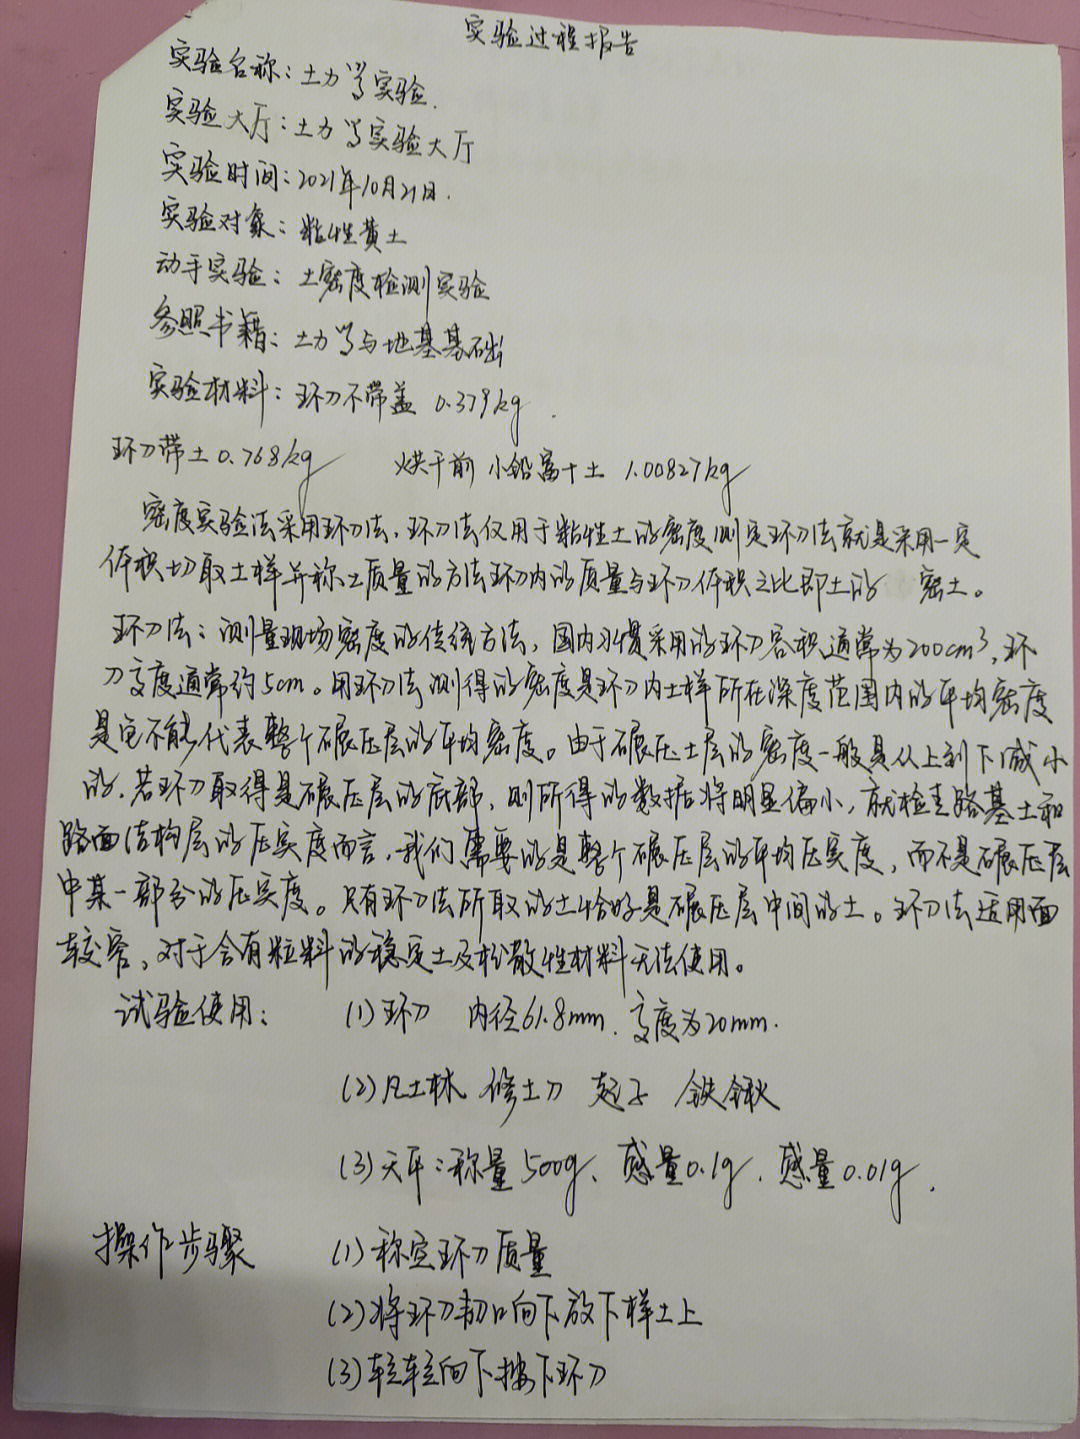 实验过程报告
实验名称：土力学实验.
实验大厅：土力学实验大厅
实验时间：2021年10月21日.
实验对象：粘性黄土
动手实验：土密度检测实验
参照书籍：土力学与地基基础
实验材料：环刀不带盖 0.379kg.
环刀带土0.768kg 烘干前 小铝富十土 1.00827kg
密度实验法采用环刀法，环刀法仅用于粘性土的密度测定环刀法就是采用一定
体积切取土样并称土质量的方法环刀内的质量与环刀体积之比即土的 密土。
环刀法：测量现场密度的传统方法，国内习惯采用的环刀容积通常为200cm³，环
刀高度通常约5cm。用环刀法测得的密度是环刀内土样所在深度范围内的平均密度
是它不能代表整个碾压层的平均密度。由于碾压土层的密度一般是从上到下减小
的，若环刀取得是碾压层的底部，则所得的数据将明显偏小，就检查路基土和
路面结构层的压实度而言，我们需要的是整个碾压层的平均压实度，而不是碾压层
中某一部分的压实度。只有环刀法所取的土恰好是碾压层中间的土。环刀法适用面
较窄，对于含有粒料的稳定土及松散性材料无法使用。
试验使用： (1)环刀 内径61.8mm，高度为20mm.
(2)凡士林 修土刀 起子 铁锹
(3)天平：称量500g、感量0.1g，感量0.01g.
操作步骤 (1)称定环刀质量
(2)将环刀韧口向下放下样土上
(3)轻轻向下按下环刀